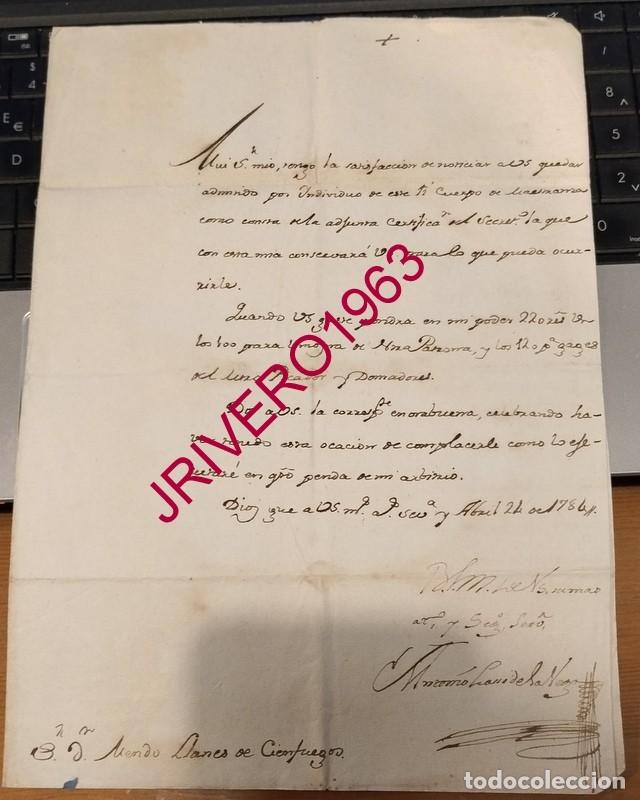 +
Mui S.r mio, tengo la satisfaccion de noticiar a VS quedar
admitido por Individuo de este R.l Cuerpo de Maestranza
como consta de la adjunta Certifica.n del Secret.o la que
con esta mia conservará VS para lo que pueda ocur-
rirle.
Quando VS guste pondra en mi poder 220 r.s v.n
los 100 para limosna de Ntra Patrona, y los 120 p.a gages
del Picador y Domadores.
Doi a VS. la corresp.te enorabuena, celebrando ha-
ver tenido esta ocacion de complacerle como lo efe-
tuaré en q.to penda de mi arbitrio.
Dios gue a VS. m.s a.s Sev.a y Abril 24 de 1784.
B.L.M. de VS. su mas
at.o y Seg.o Serv.r
Antonio Lasso de la Vega
S.r D.n Mendo Llanes de Cienfuegos.
JRIVERO1963
todocoleccion